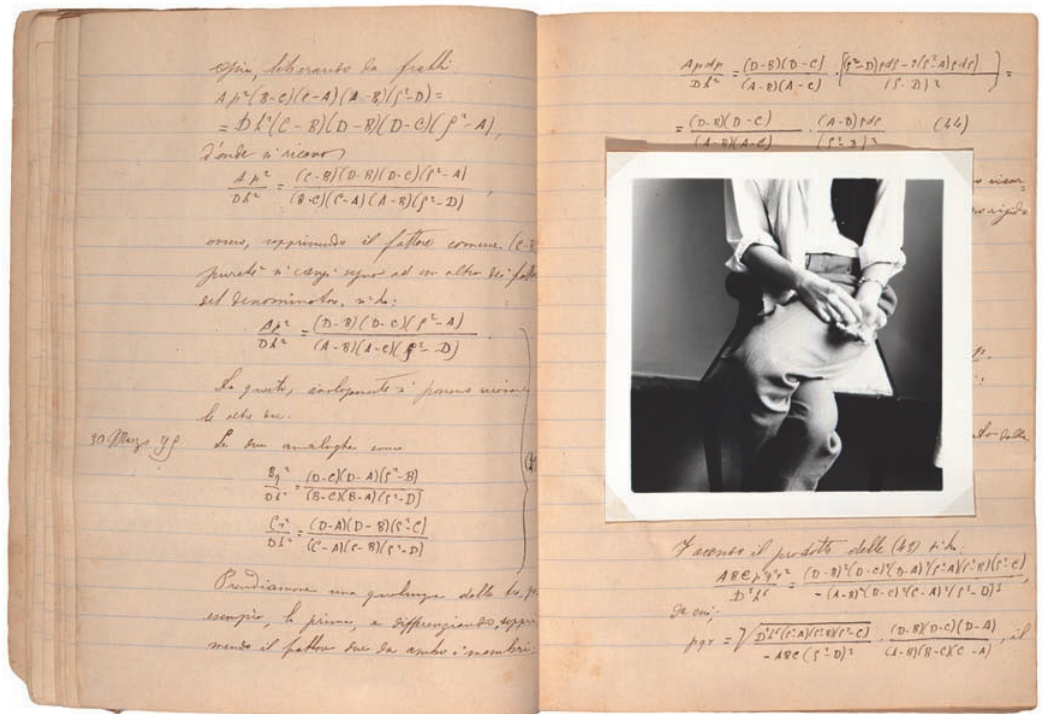 ossia, liberando da fratti
Ap²(B-C)(C-A)(A-B)(ρ²-D)=
= Dh²(C-B)(D-B)(D-C)(ρ²-A),
d'onde si ricava
Ap²/Dh² = (C-B)(D-B)(D-C)(ρ²-A)/(B-C)(C-A)(A-B)(ρ²-D),
ovvero, sopprimendo il fattore comune (C-B
purchè si cangi segno ad un altro dei fatt
del denominatore, si ha:
Ap²/Dh² = (D-B)(D-C)(ρ²-A)/(A-B)(A-C)(ρ²-D)
Da questa, analogamente si possono
le altre due.
30 Marzo 99 Le due analoghe sono
Bq²/Dh² = (D-C)(D-A)(ρ²-B)/(B-C)(B-A)(ρ²-D)
Cr²/Dh² = (D-A)(D-B)(ρ²-C)/(C-A)(C-B)(ρ²-D)
Prendiamone una qualunque delle tre, per
esempio, la prima, e differenziando, soppri
mendo il fattore due da ambo i membri:
Apdp/Dh² = (D-B)(D-C)/(A-B)(A-C) · [(ρ²-D)ρdρ-(ρ²-A)ρdρ/(ρ²-D)²] =
= (D-B)(D-C)/(A-B)(A-C) · (A-D)ρdρ/(ρ²-D)² (44)
rigido
della
Facendo il prodotto delle (43) si ha:
ABCp²q²r²/D³h⁶ = (D-B)²(D-C)²(D-A)²(ρ²-A)(ρ²-B)(ρ²-C)/-(A-B)²(B-C)²(C-A)²(ρ²-D)³,
da cui;
pqr = √D³h⁶(ρ²-A)(ρ²-B)(ρ²-C)/-ABC(ρ²-D)³ · (D-B)(D-C)(D-A)/(A-B)(B-C)(C-A), il